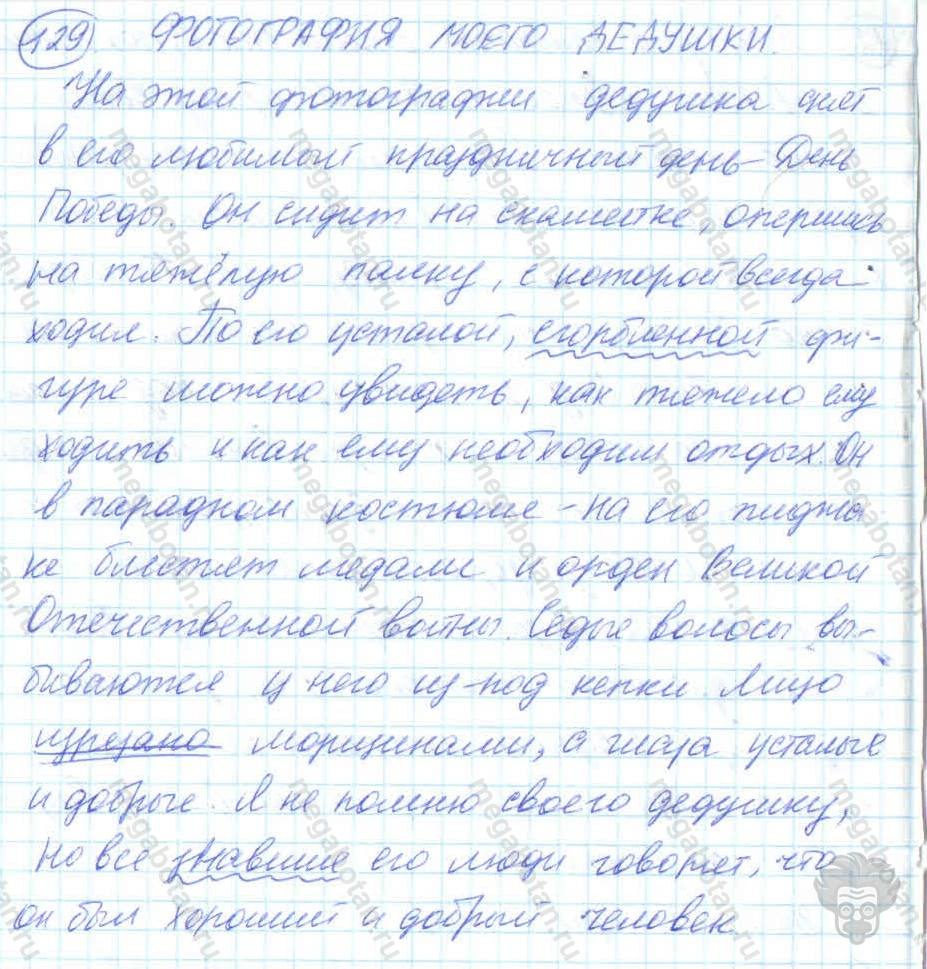 129 ФОТОГРАФИЯ МОЕГО ДЕДУШКИ.
На этой фотографии дедушка снят
в его любимый праздничный день – День
Победы. Он сидит на скамейке, опершись
на тяжёлую палку, с которой всегда
ходил. По его усталой, сгорбленной фи-
гуре можно увидеть, как тяжело ему
ходить и как ему необходим отдых. Он
в парадном костюме – на его пиджа
ке блестят медали и орден Великой
Отечественной войны. Седые волосы вы-
биваются у него из-под кепки. Лицо
изрезано морщинами, а глаза усталые
и добрые. Я не помню своего дедушку,
но все знавшие его люди говорят, что
он был хороший и добрый человек.
megabotan.ru